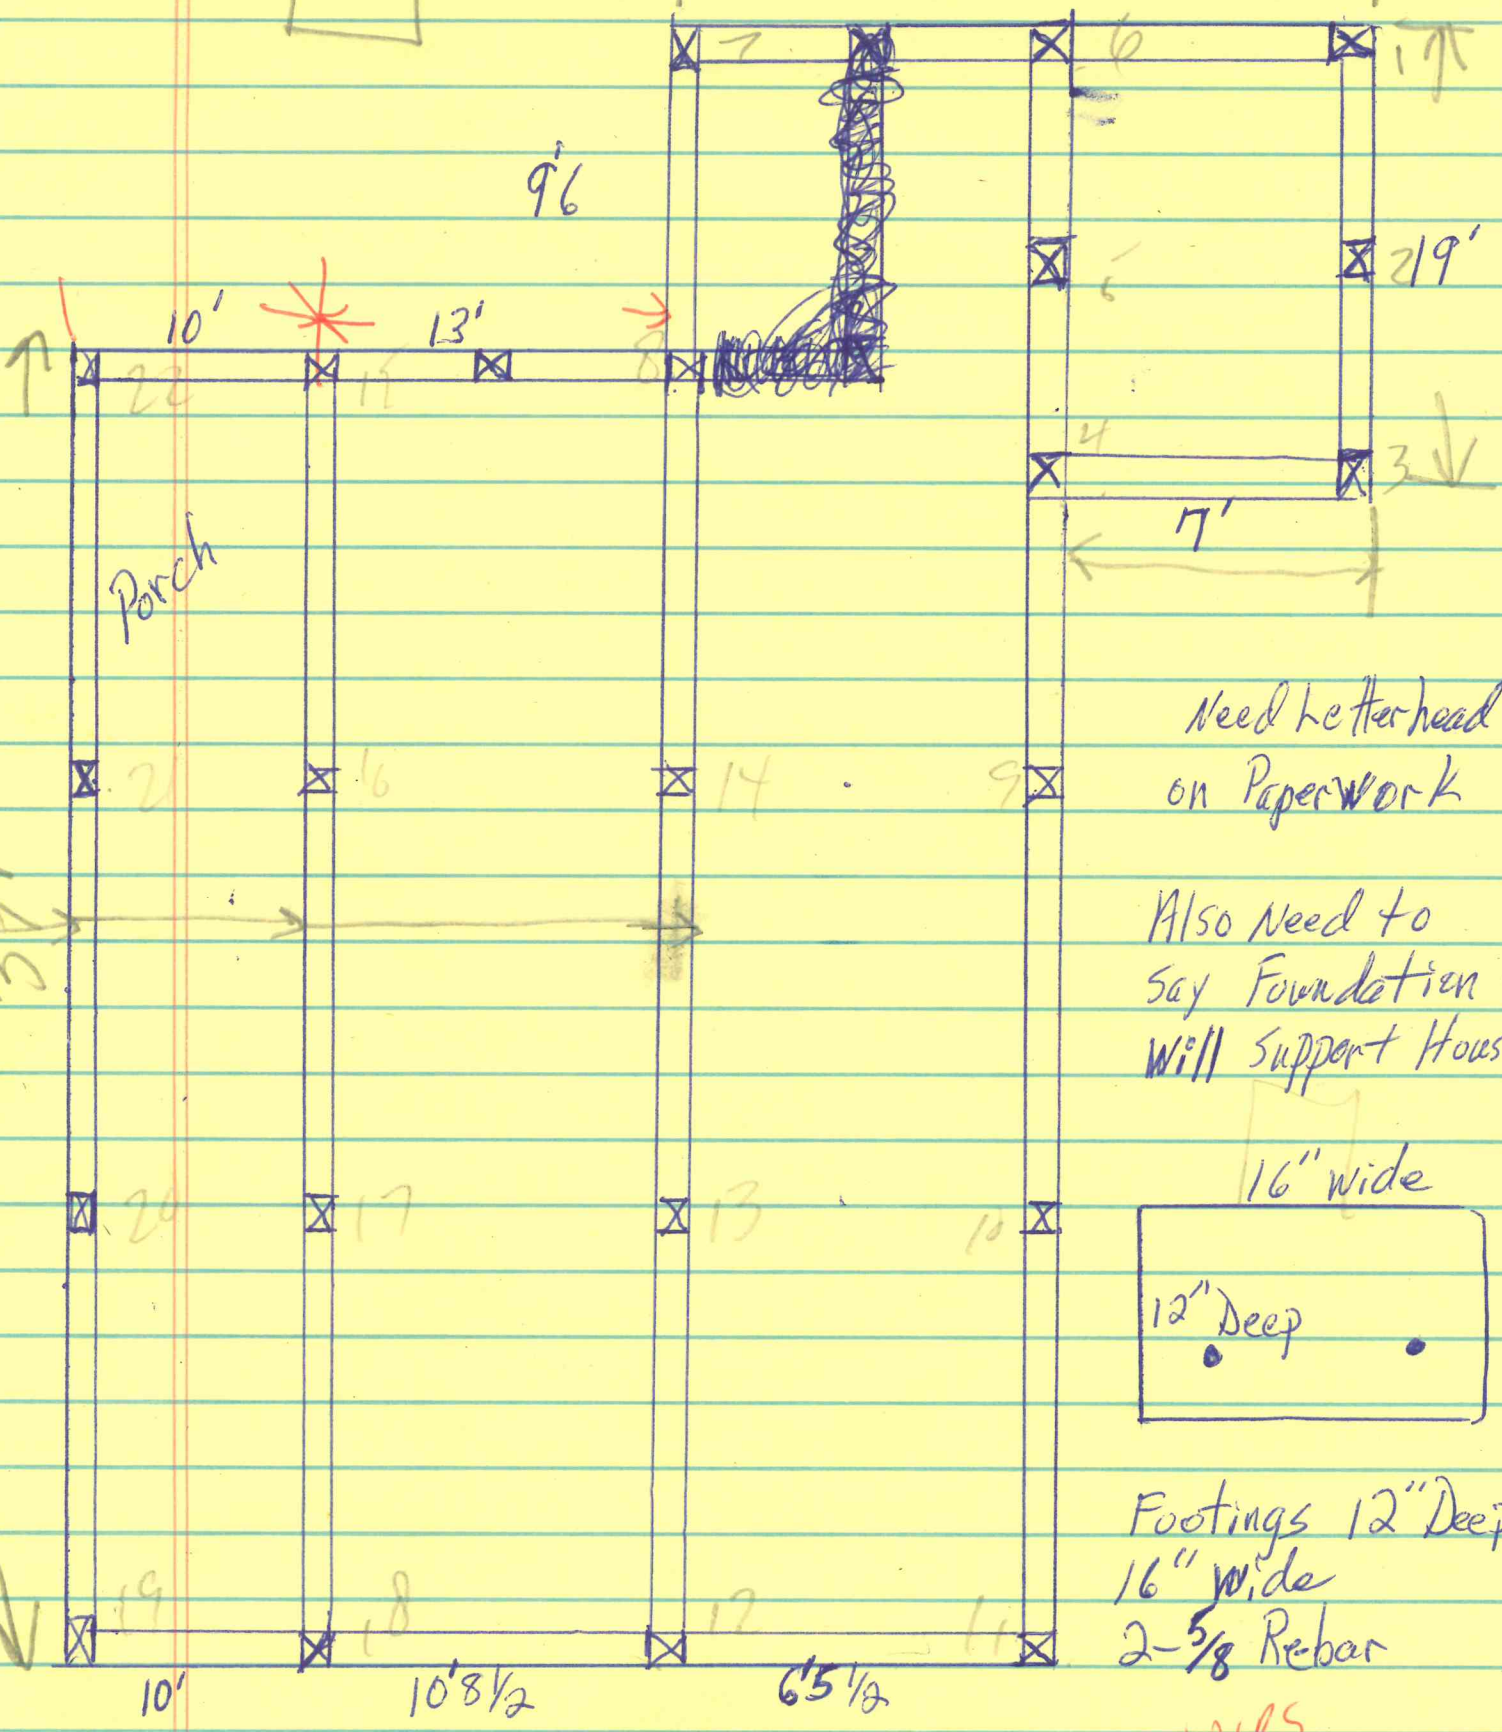 7
6
1
9'6
5
2
19'
10'
13'
22
15
8
4
3
7'
Porch
Need Letterhead
on Paperwork
21
16
14
9
Also Need to
Say Foundation
Will Support Hous
16" wide
12" Deep
20
17
13
10
Footings 12" Deep
16" wide
2-5/8 Rebar
19
18
12
11
10'
10'8 1/2
6'5 1/2